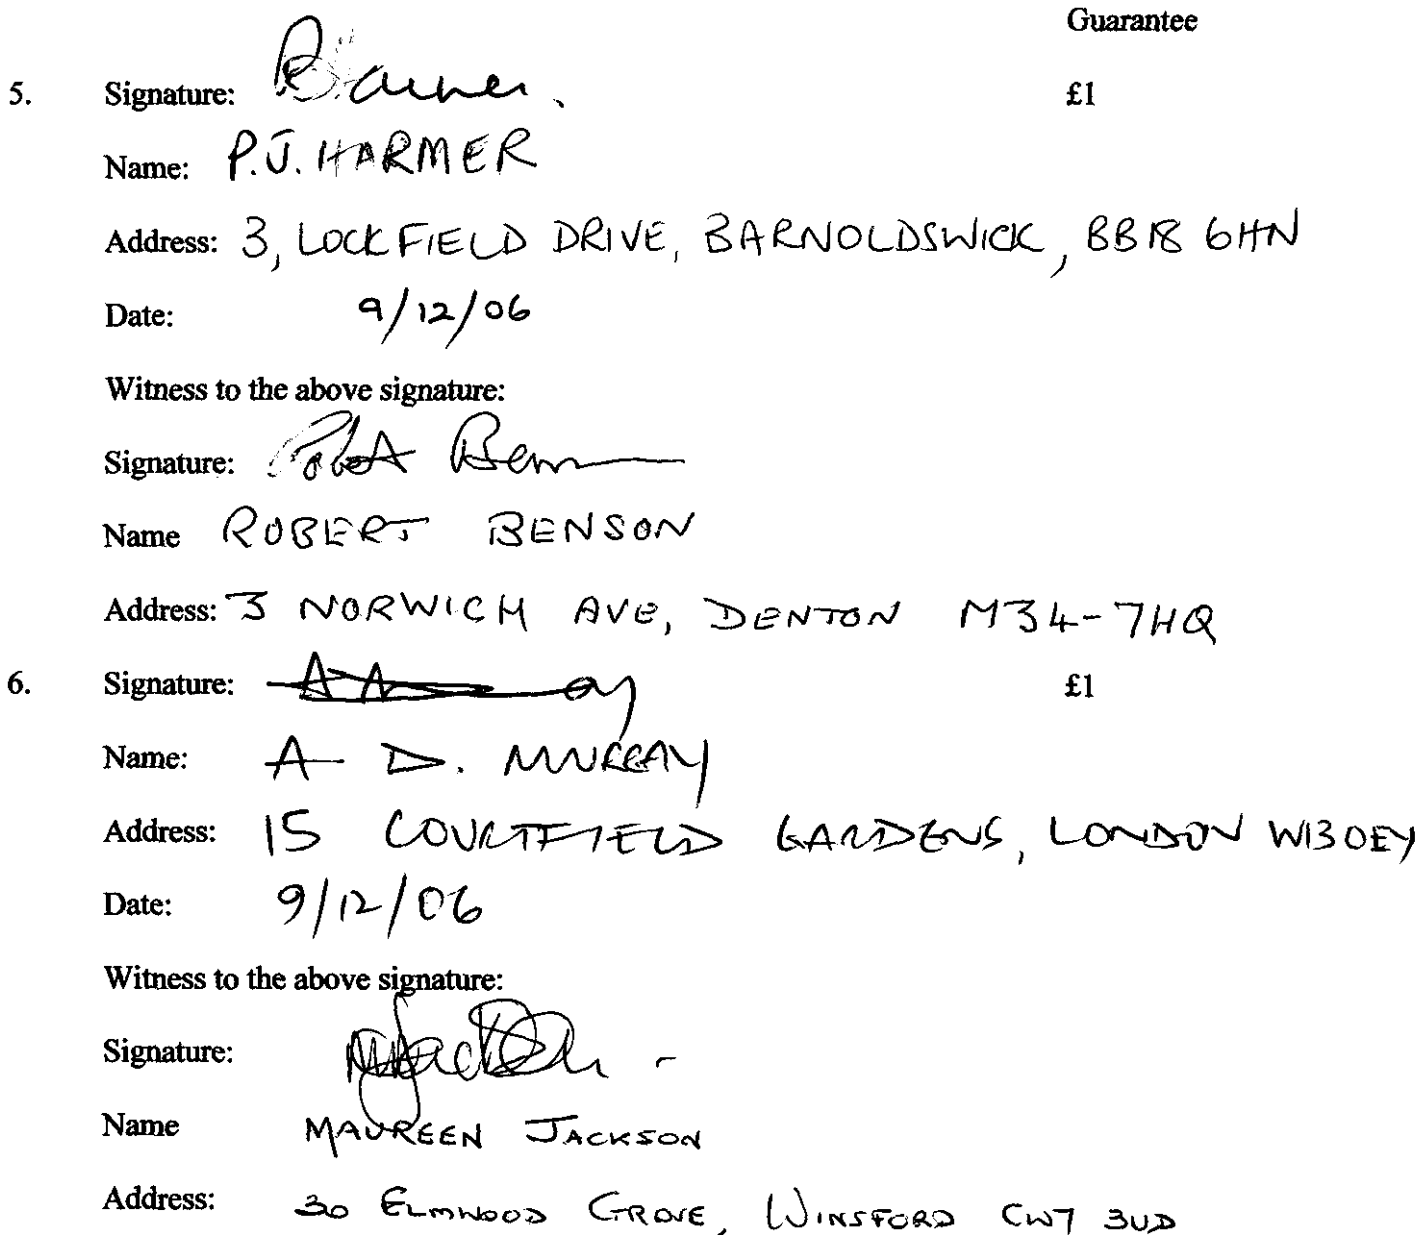 Guarantee
5. Signature: £1
Name: P.J. HARMER
Address: 3, LOCKFIELD DRIVE, BARNOLDSWICK, BB18 6HN
Date: 9/12/06
Witness to the above signature:
Signature:
Name ROBERT BENSON
Address: 3 NORWICH AVE, DENTON M34-7HQ
6. Signature: £1
Name: A D. MURRAY
Address: 15 COURTFIELD GARDENS, LONDON W13 0EY
Date: 9/12/06
Witness to the above signature:
Signature:
Name MAUREEN JACKSON
Address: 30 ELMWOOD GROVE, WINSFORD CW7 3UD